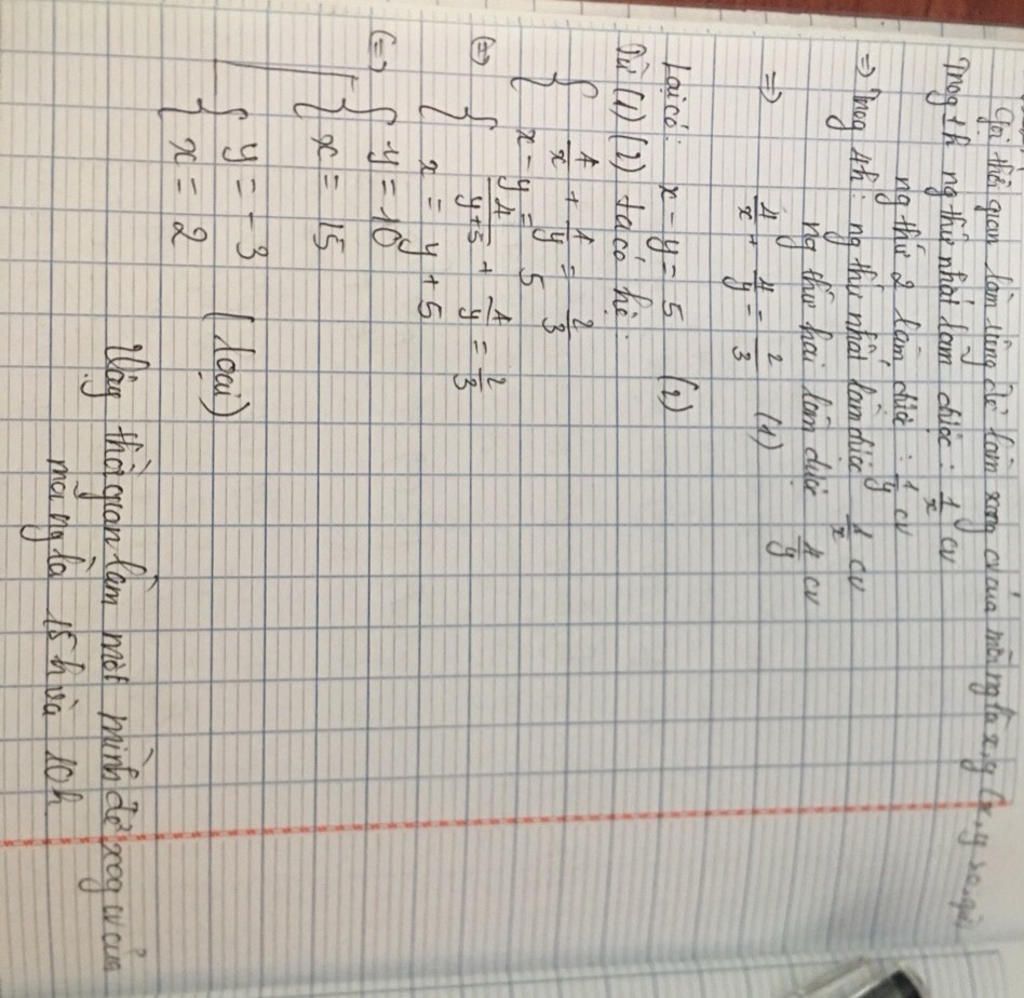 Gọi thời gian làm riêng để làm xong cv của mỗi ng là x, y (x, y >0, giờ)
Trog 1h ng thứ nhất làm được : 1/x cv
ng thứ 2 làm được : 1/y cv
=) Trog 4h : ng thứ nhất làm được 4/x cv
ng thứ hai làm được 4/y cv
=) 4/x + 4/y = 2/3 (1)
Lại có: x - y = 5 (2)
Từ (1) (2) ta có hệ :
{ 4/x + 4/y = 2/3
x - y = 5
(=) { 4/y+5 + 4/y = 2/3
x = y + 5
(=) { y = 10
x = 15
{ y = -3
x = 2 (loại)
Vậy thời gian làm một mình để xog cv của
mỗi ng là 15h và 10h